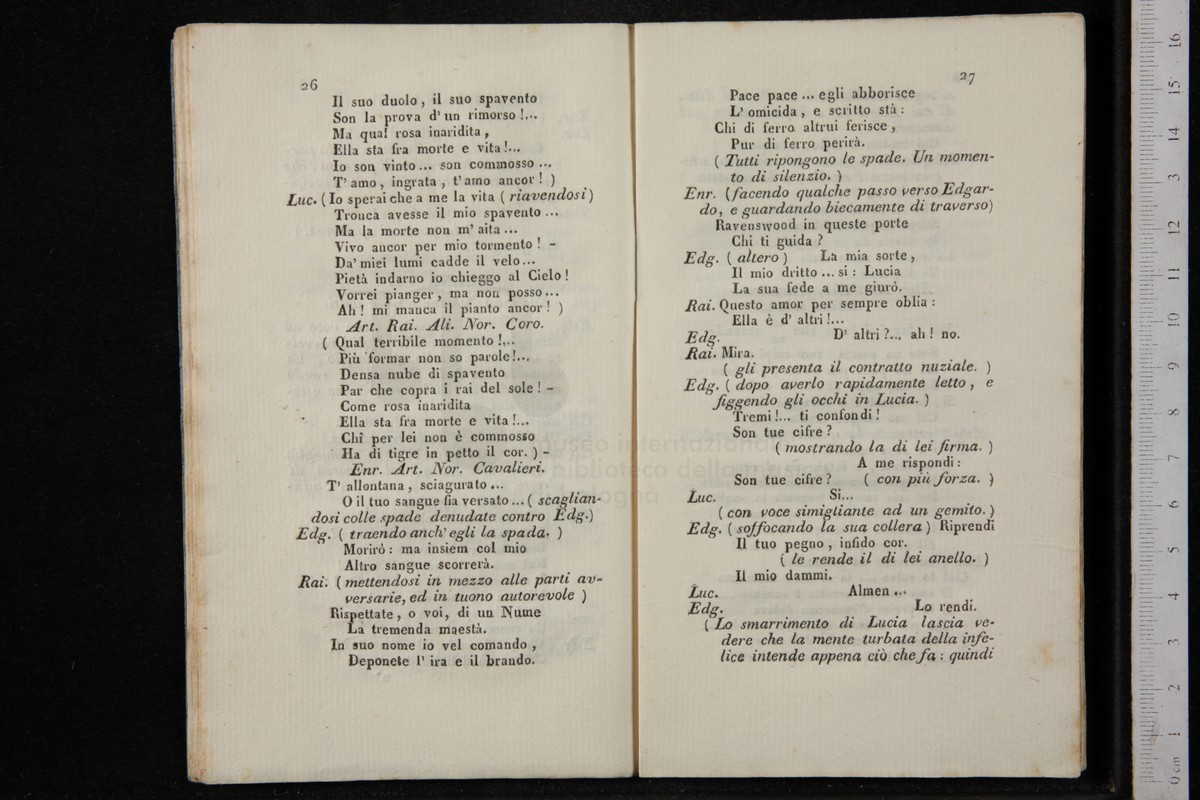 26
Il suo duolo, il suo spavento
Son la prova d' un rimorso!...
Ma qual rosa inaridita,
Ella sta fra morte e vita!...
Io son vinto... son commosso...
T' amo, ingrata, t' amo ancor! )
Luc. ( Io sperai che a me la vita ( riavendosi )
Tronca avesse il mio spavento...
Ma la morte non m' aita...
Vivo ancor per mio tormento! -
Da' miei lumi cadde il velo...
Pietà indarno io chieggo al Cielo!
Vorrei pianger, ma non posso...
Ah! mi manca il pianto ancor! )
Art. Rai. Ali. Nor. Coro.
( Qual terribile momento!...
Più formar non so parole!...
Densa nube di spavento
Par che copra i rai del sole! -
Come rosa inaridita
Ella sta fra morte e vita!...
Chi per lei non è commosso
Ha di tigre in petto il cor. ) -
Enr. Art. Nor. Cavalieri.
T' allontana, sciagurato...
O il tuo sangue fia versato... ( scaglian-
dosi colle spade denudate contro Edg.)
Edg. ( traendo anch' egli la spada. )
Morirò: ma insiem col mio
Altro sangue scorrerà.
Rai. ( mettendosi in mezzo alle parti av-
versarie, ed in tuono autorevole )
Rispettate, o voi, di un Nume
La tremenda maestà.
In suo nome io vel comando,
Deponete l' ira e il brando.
27
Pace pace... egli abborisce
L' omicida, e scritto stà:
Chi di ferro altrui ferisce,
Pur di ferro perirà.
( Tutti ripongono le spade. Un momen-
to di silenzio. )
Enr. (facendo qualche passo verso Edgar-
do, e guardando biecamente di traverso)
Ravenswood in queste porte
Chi ti guida?
Edg. ( altero ) La mia sorte,
Il mio dritto... si: Lucia
La sua fede a me giurò.
Rai. Questo amor per sempre oblia:
Ella è d' altri!...
Edg. D' altri?... ah! no.
Rai. Mira.
( gli presenta il contratto nuziale. )
Edg. ( dopo averlo rapidamente letto, e
figgendo gli occhi in Lucia. )
Tremi!... ti confondi!
Son tue cifre?
( mostrando la di lei firma. )
A me rispondi:
Son tue cifre? ( con più forza. )
Luc. Si...
( con voce simigliante ad un gemito. )
Edg. ( soffocando la sua collera ) Riprendi
Il tuo pegno, infido cor.
( le rende il di lei anello. )
Il mio dammi.
Luc. Almen...
Edg. Lo rendi.
( Lo smarrimento di Lucia lascia ve-
dere che la mente turbata della infe-
lice intende appena ciò che fa: quindi
museo internazionale
biblioteca della musica
bologna
0 cm 1 2 3 4 5 6 7 8 9 10 11 12 13 14 15 16